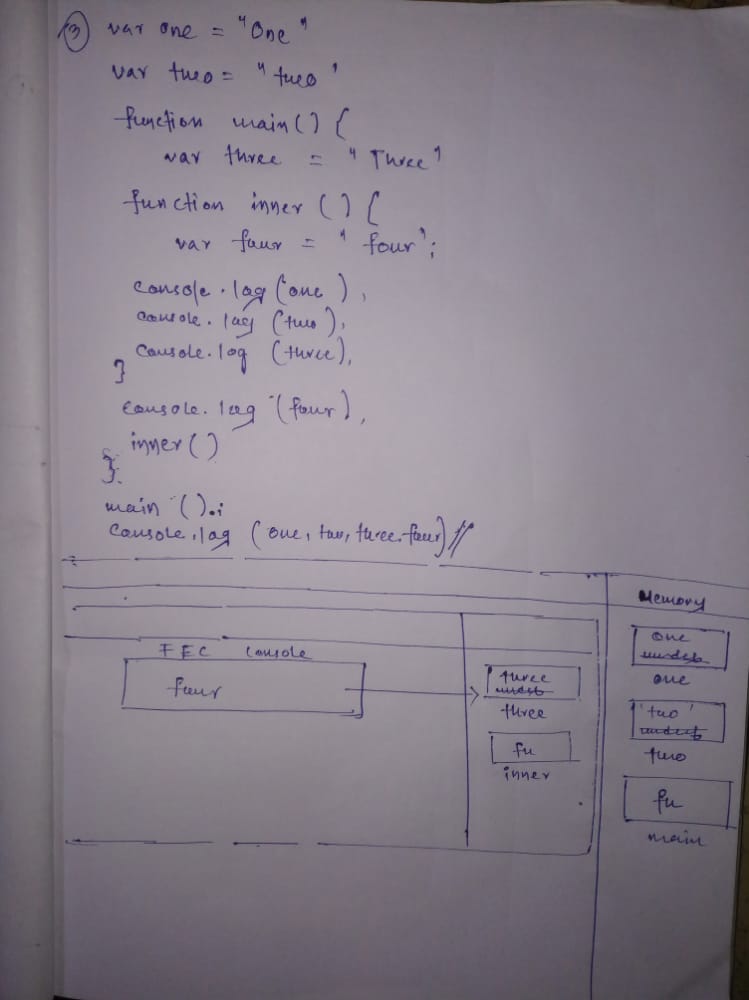 ③ var one = "One"
var two = "two"
function main() {
var three = "Three"
function inner () {
var four = "four";
console.log (one),
console.log (two),
console.log (three),
}
console.log (four),
inner()
}
main ().;
console.log (one, two, three, four) //
Memory
FEC console
four
three
undef
three
fu
inner
one
undef
one
'two'
undef
two
fu
main